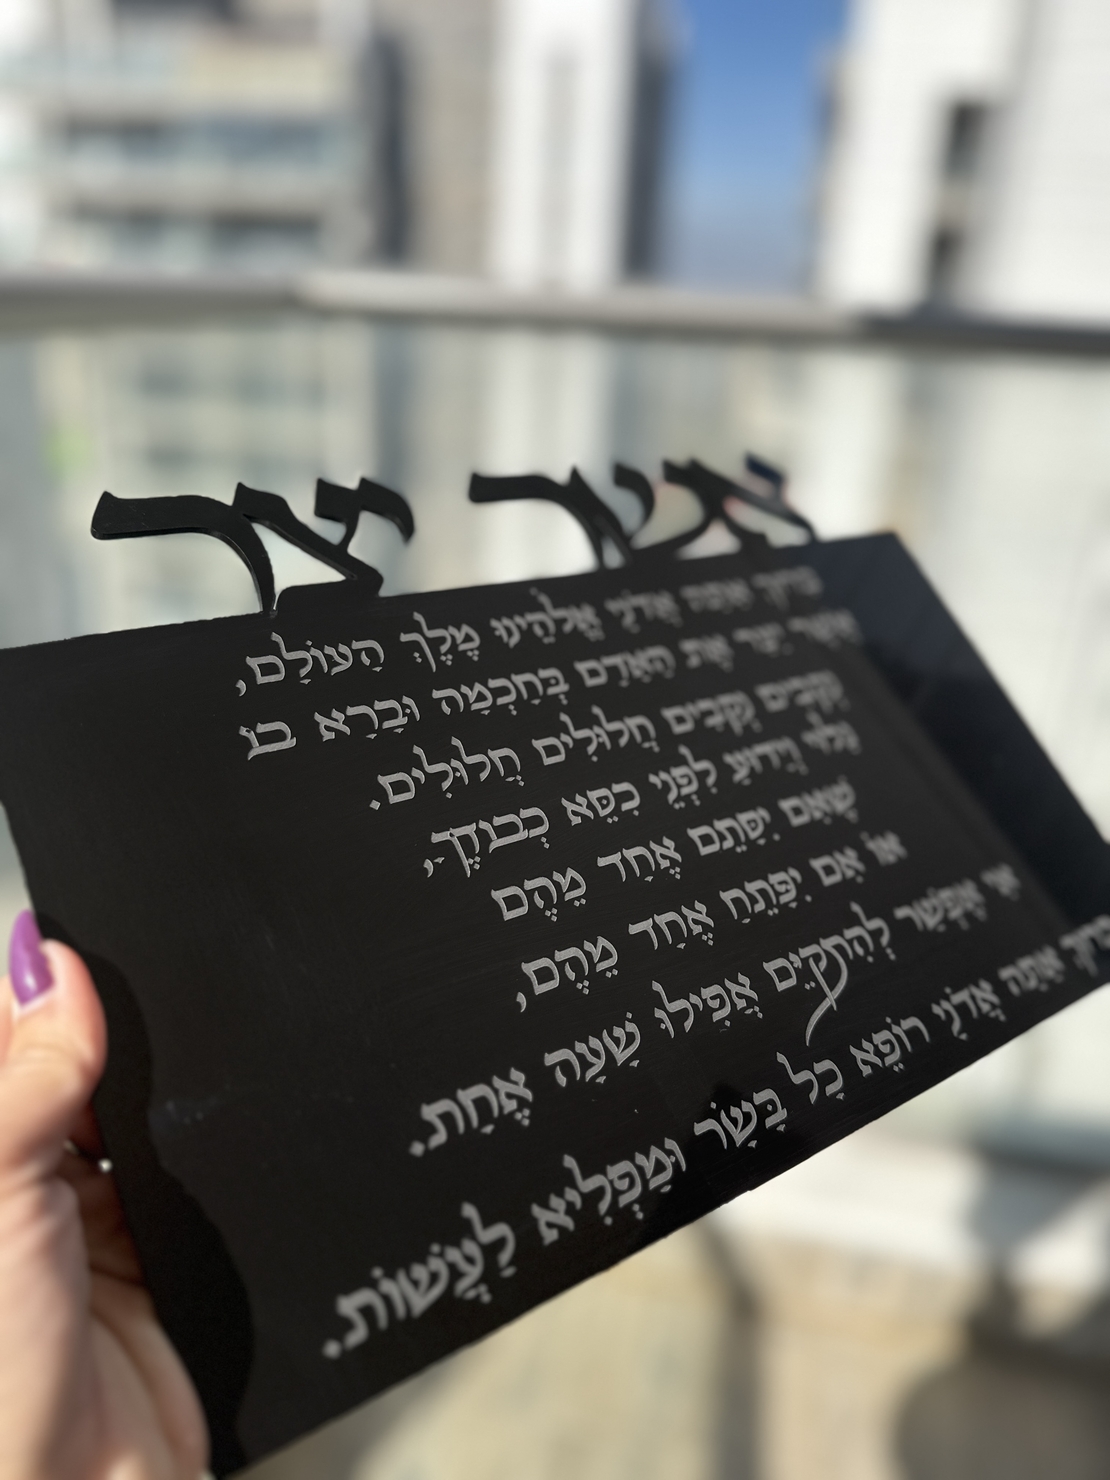 אשר יצר
בָּרוּךְ אַתָּה אֲדֹנָי אֱלֹהֵינוּ מֶלֶךְ הָעוֹלָם,
אֲשֶׁר יָצַר אֶת הָאָדָם בְּחָכְמָה וּבָרָא בוֹ
נְקָבִים נְקָבִים חֲלוּלִים חֲלוּלִים.
גָּלוּי וְיָדוּעַ לִפְנֵי כִסֵּא כְבוֹדֶךָ,
שֶׁאִם יִסָּתֵם אֶחָד מֵהֶם
אוֹ אִם יִפָּתֵחַ אֶחָד מֵהֶם,
אִי אֶפְשַׁר לְהִתְקַיֵּם אֲפִילוּ שָׁעָה אֶחָת.
בָּרוּךְ אַתָּה אֲדֹנָי רוֹפֵא כָל בָּשָׂר וּמַפְלִיא לַעֲשׂוֹת.